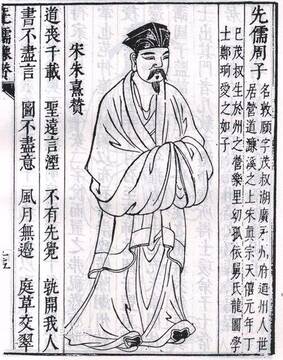 先儒周子
名敦頤字茂叔湖廣府道州人世
居營道濂溪之上宋真宗天禧元年丁
巳茂叔生於州之營樂里幼孤依舅氏龍圖學
士鄭珦愛之如子
宋朱熹贊
道喪千載 聖遠言湮 不有先覺 孰開我人
書不盡言 圖不盡意 風月無邊 庭草交翠